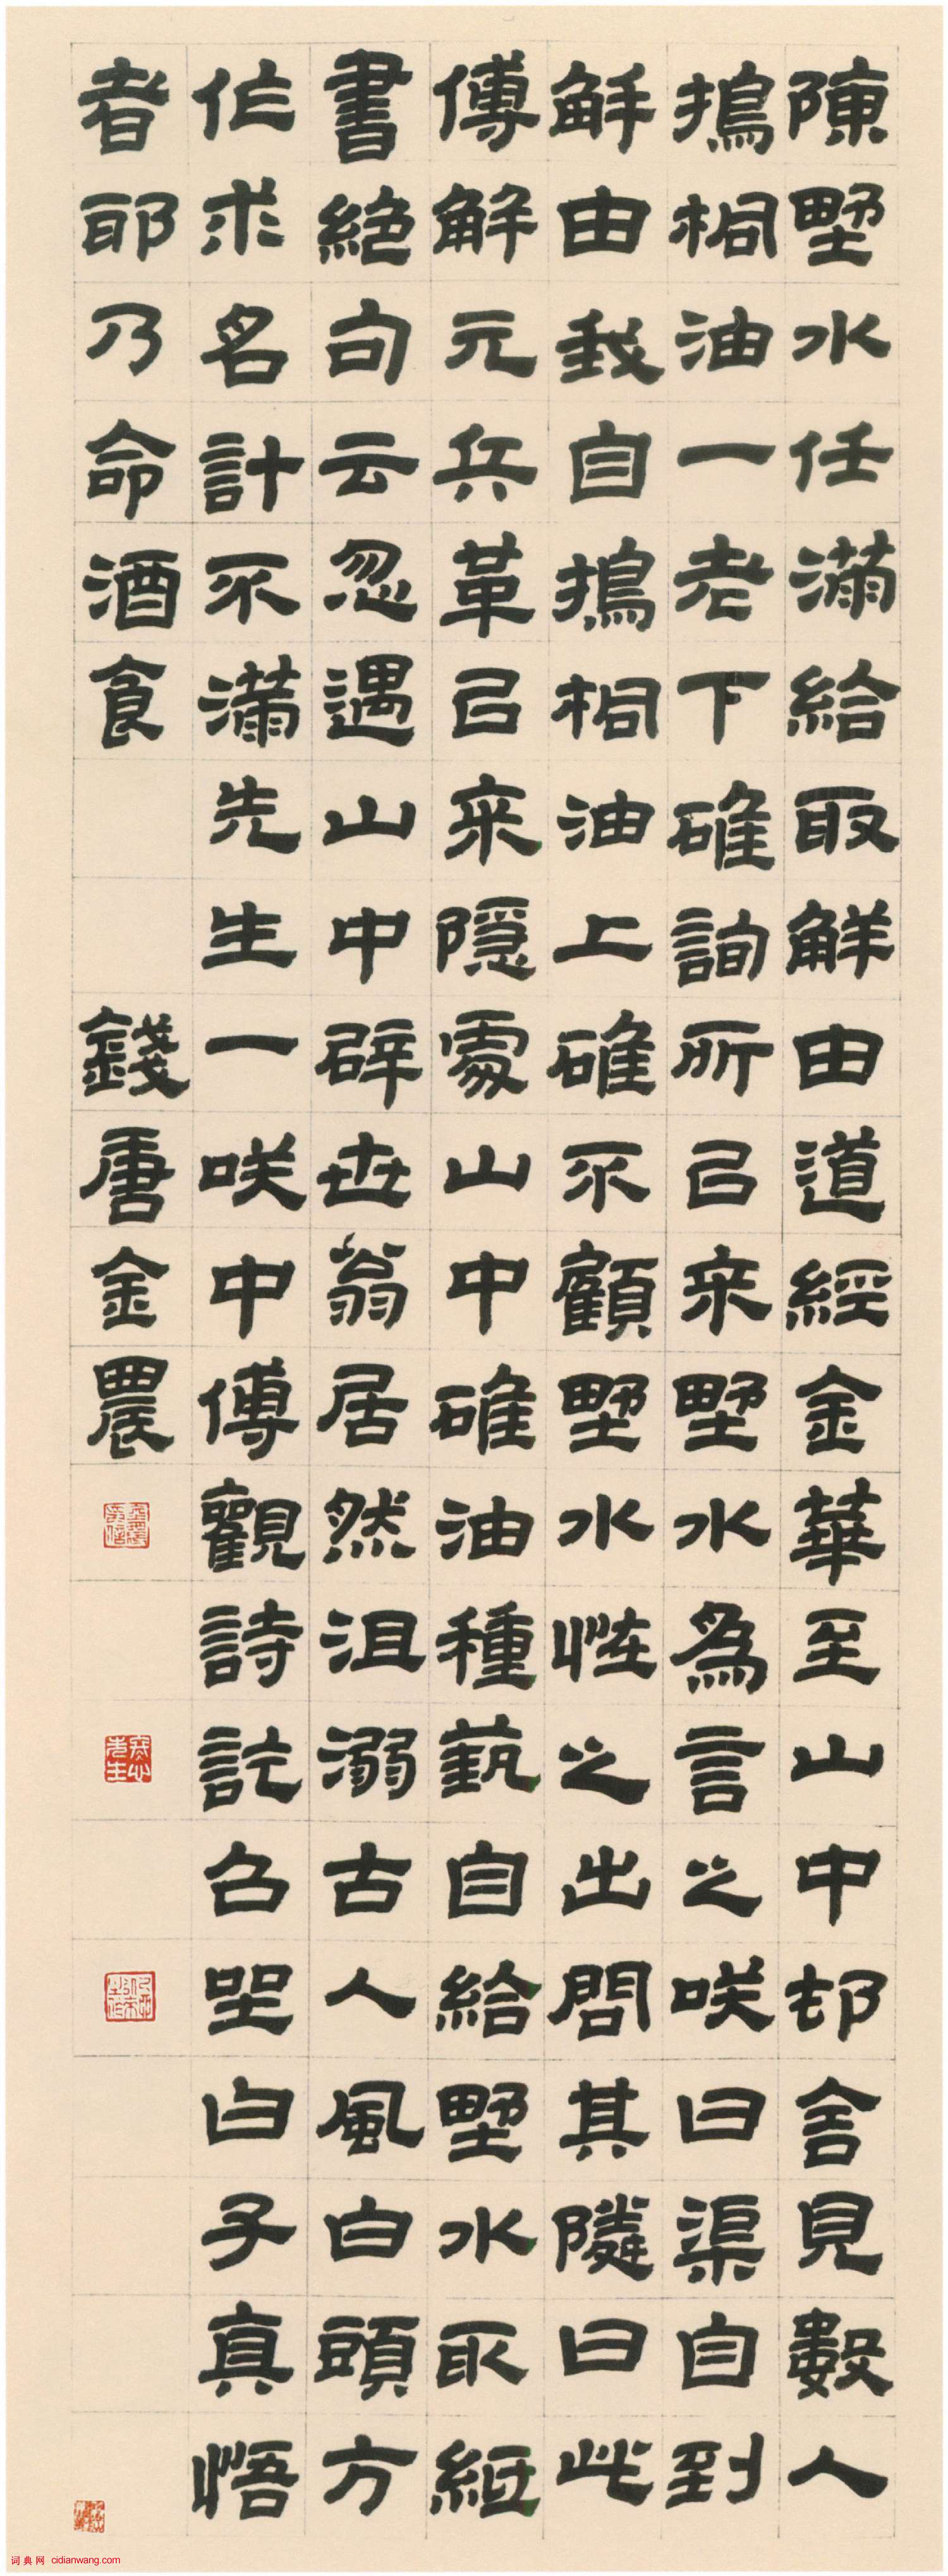 陳野水任滿給取觧由道經金華至山中邨舍見數人
搗桐油一老下碓詢所已來野水為言之咲曰渠自到
觧由我自搗桐油上碓不顧野水怪之出問其隣曰此
傅解元兵革已來隱處山中碓油種蓺自給野水取紙
書絕句云忽遇山中辟世翁居然沮溺古人風白頭方
作求名計不滿先生一咲中傅觀詩訖召坐曰子真悟
者耶乃命酒食 錢唐金農
冬心先生
词典网 cidianwang.com